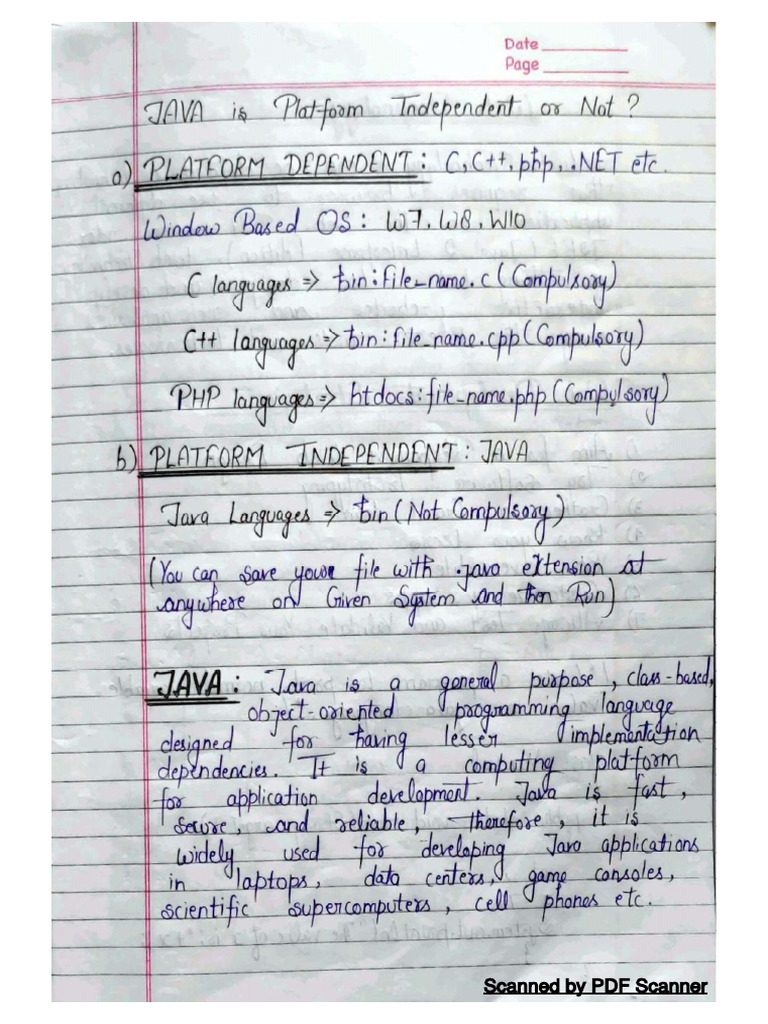 Date
Page
JAVA is Platform Independent or Not ?
a) PLATFORM DEPENDENT : C, C++, php, .NET etc.
Window Based OS : W7, W8, W10
C languages => bin : file_name.c (Compulsory)
C++ languages => bin : file_name.cpp (Compulsory)
PHP languages => htdocs : file_name.php (Compulsory)
b) PLATFORM INDEPENDENT : JAVA
Java Languages => bin (Not Compulsory)
(You can save your file with .java extension at
anywhere on Given System and then Run)
JAVA : Java is a general purpose, class-based,
object-oriented programming language
designed for having lesser implementation
dependencies. It is a computing platform
for application development. Java is fast,
secure, and reliable, therefore, it is
widely used for developing Java applications
in laptops, data centers, game consoles,
scientific supercomputers, cell phones etc.
Scanned by PDF Scanner